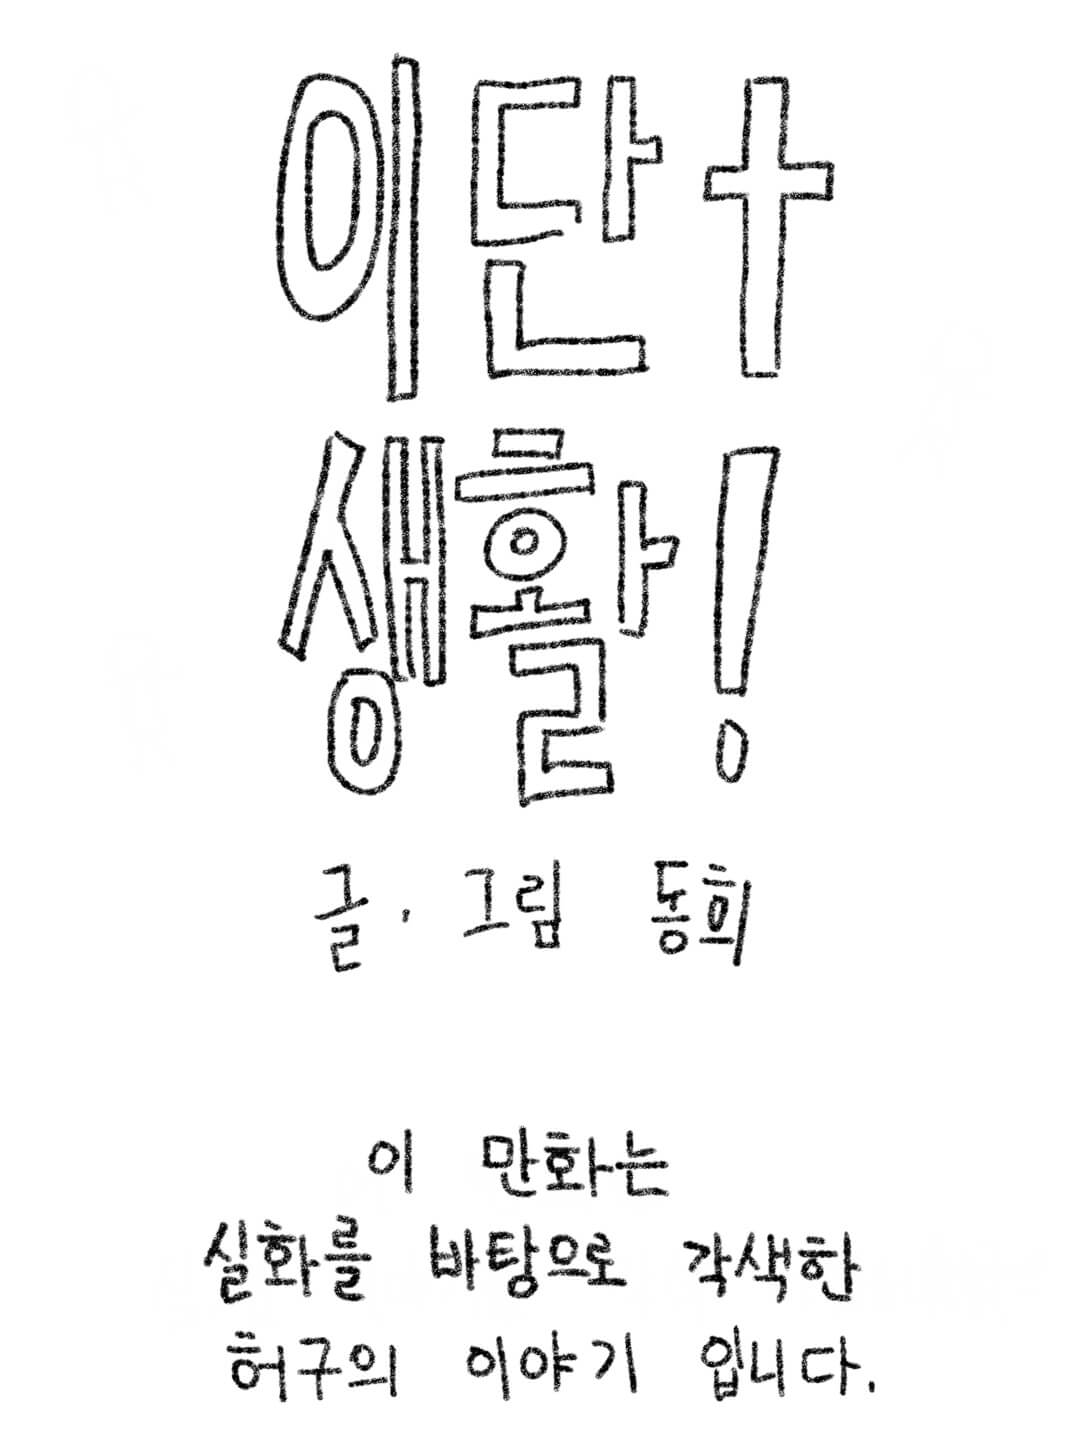 이단✝
생활!
글·그림 동희
이 만화는
실화를 바탕으로 각색한
허구의 이야기 입니다.